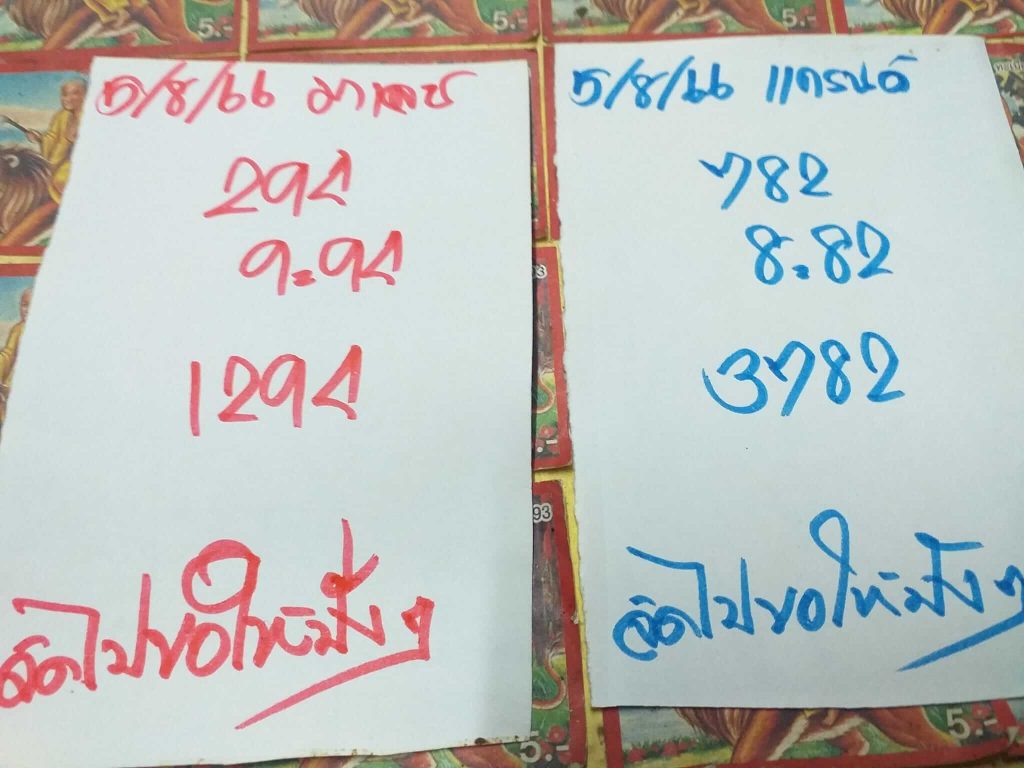 5/8/66
294
9.94
1294
จัดไปขอให้ปังๆ
5/8/66 แกรนด์
782
8.82
3782
จัดไปขอให้ปังๆ
5.-
5.-
5.-
93
5.-
5.-